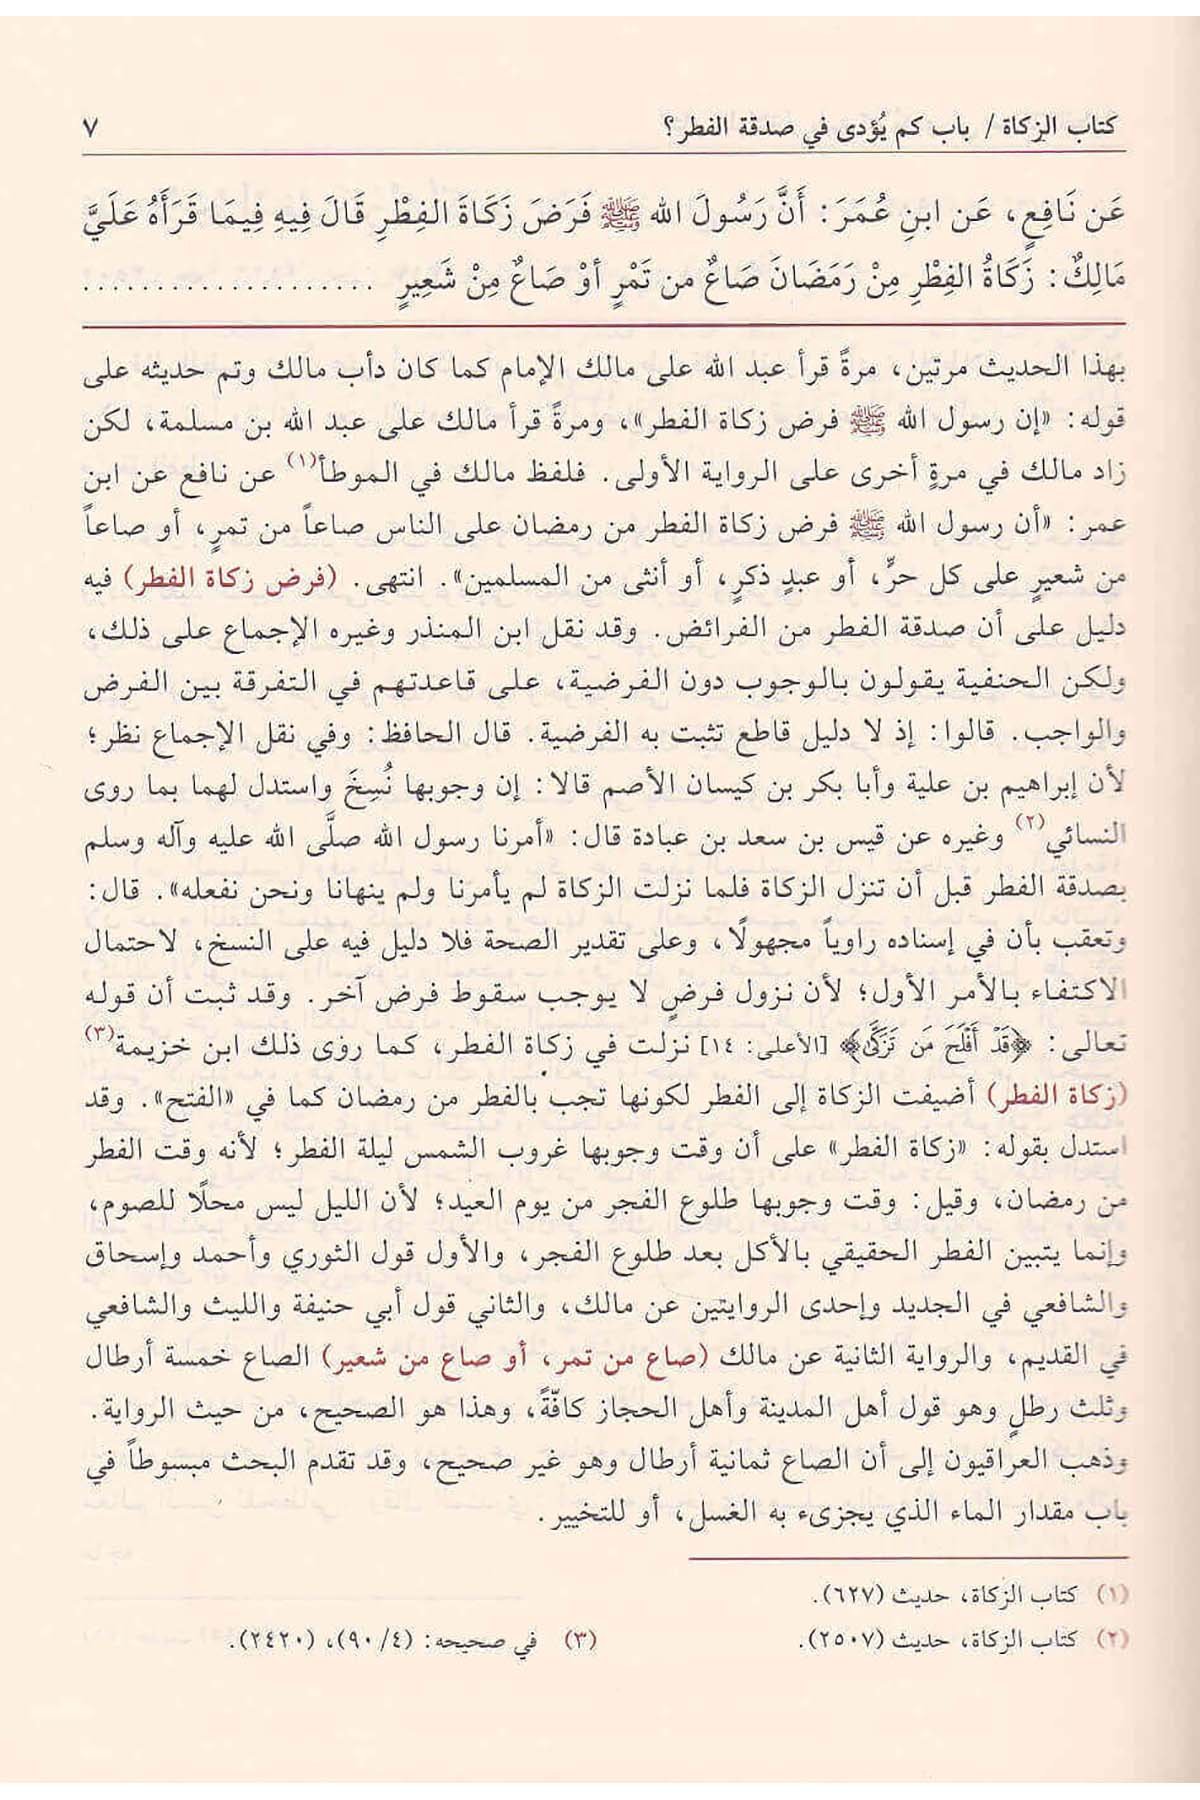 كتاب الزكاة / باب كم يُؤدى في صدقة الفطر؟ ٧
عَن نَافِعٍ، عَن ابنِ عُمَرَ: أَنَّ رَسُولَ الله ﷺ فَرَضَ زَكَاةَ الفِطْرِ قَالَ فِيهِ فِيمَا قَرَأَهُ عَلَيَّ
مَالِكٌ: زَكَاةُ الفِطْرِ مِنْ رَمَضَانَ صَاعٌ من تَمْرٍ أوْ صَاعٌ مِنْ شَعِيرٍ ....................
بهذا الحديث مرتين، مرةً قرأ عبد الله على مالك الإمام كما كان دأب مالك وتم حديثه على
قوله: «إن رسول الله ﷺ فرض زكاة الفطر»، ومرةً قرأ مالك على عبد الله بن مسلمة، لكن
زاد مالك في مرةٍ أخرى على الرواية الأولى. فلفظ مالك في الموطأ(١) عن نافع عن ابن
عمر: «أن رسول الله ﷺ فرض زكاة الفطر من رمضان على الناس صاعاً من تمرٍ، أو صاعاً
من شعيرٍ على كل حرٍّ، أو عبدٍ ذكرٍ، أو أنثى من المسلمين». انتهى. (فرض زكاة الفطر) فيه
دليل على أن صدقة الفطر من الفرائض. وقد نقل ابن المنذر وغيره الإجماع على ذلك،
ولكن الحنفية يقولون بالوجوب دون الفرضية، على قاعدتهم في التفرقة بين الفرض
والواجب. قالوا: إذ لا دليل قاطع تثبت به الفرضية. قال الحافظ: وفي نقل الإجماع نظر؛
لأن إبراهيم بن علية وأبا بكر بن كيسان الأصم قالا: إن وجوبها نُسِخَ واستدل لهما بما روى
النسائي(٢) وغيره عن قيس بن سعد بن عبادة قال: «أمرنا رسول الله صلَّى الله عليه وآله وسلم
بصدقة الفطر قبل أن تنزل الزكاة فلما نزلت الزكاة لم يأمرنا ولم ينهانا ونحن نفعله». قال:
وتعقب بأن في إسناده راوياً مجهولًا، وعلى تقدير الصحة فلا دليل فيه على النسخ، لاحتمال
الاكتفاء بالأمر الأول؛ لأن نزول فرضٍ لا يوجب سقوط فرض آخر. وقد ثبت أن قوله
تعالى: ﴿قَدْ أَفْلَحَ مَن تَزَكَّىٰ﴾ [الأعلى: ١٤] نزلت في زكاة الفطر، كما روى ذلك ابن خزيمة(٣)
(زكاة الفطر) أضيفت الزكاة إلى الفطر لكونها تجب بالفطر من رمضان كما في «الفتح». وقد
استدل بقوله: «زكاة الفطر» على أن وقت وجوبها غروب الشمس ليلة الفطر؛ لأنه وقت الفطر
من رمضان، وقيل: وقت وجوبها طلوع الفجر من يوم العيد؛ لأن الليل ليس محلًا للصوم،
وإنما يتبين الفطر الحقيقي بالأكل بعد طلوع الفجر، والأول قول الثوري وأحمد وإسحاق
والشافعي في الجديد وإحدى الروايتين عن مالك، والثاني قول أبي حنيفة والليث والشافعي
في القديم، والرواية الثانية عن مالك (صاع من تمر، أو صاع من شعير) الصاع خمسة أرطال
وثلث رطلٍ وهو قول أهل المدينة وأهل الحجاز كافّةً، وهذا هو الصحيح، من حيث الرواية.
وذهب العراقيون إلى أن الصاع ثمانية أرطال وهو غير صحيح، وقد تقدم البحث مبسوطاً في
باب مقدار الماء الذي يجزىء به الغسل، أو للتخيير.
(١) كتاب الزكاة، حديث (٦٢٧).
(٢) كتاب الزكاة، حديث (٢٥٠٧). (٣) في صحيحه: (٤/ ٩٠)، (٢٤٢٠).